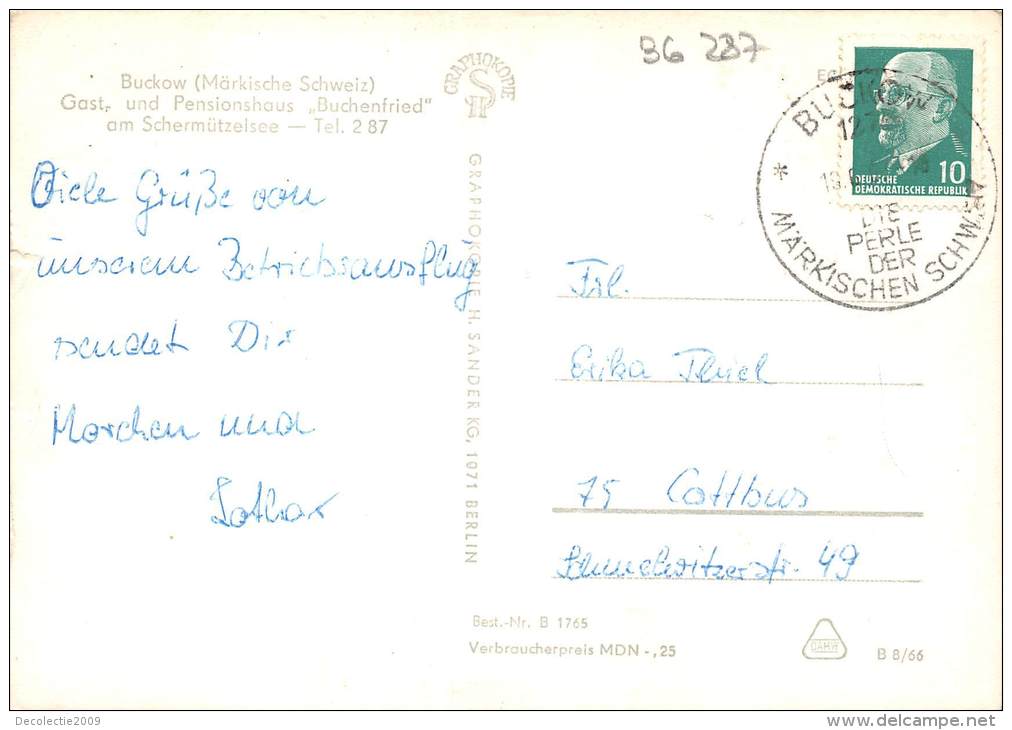 36 287
Buckow (Märkische Schweiz)
Gast- und Pensionshaus „Buchenfried"
am Schermützelsee — Tel. 2 87
GRAPHOKOPIE
H S
Viele Grüße von
unserem Betriebsausflug
sendet Dir
Marchen und
Lothar
GRAPHOKOPIE H. SANDER KG, 1071 BERLIN
BUCKOW
127
DIE
PERLE
DER
MÄRKISCHEN SCHWEIZ
10
DEUTSCHE
DEMOKRATISCHE REPUBLIK
Frl.
Erika Thiel
75 Cottbus
49
Best.-Nr. B 1765
Verbraucherpreis MDN -,25
DAHW
B 8/66
Decolectie2009
www.delcampe.net